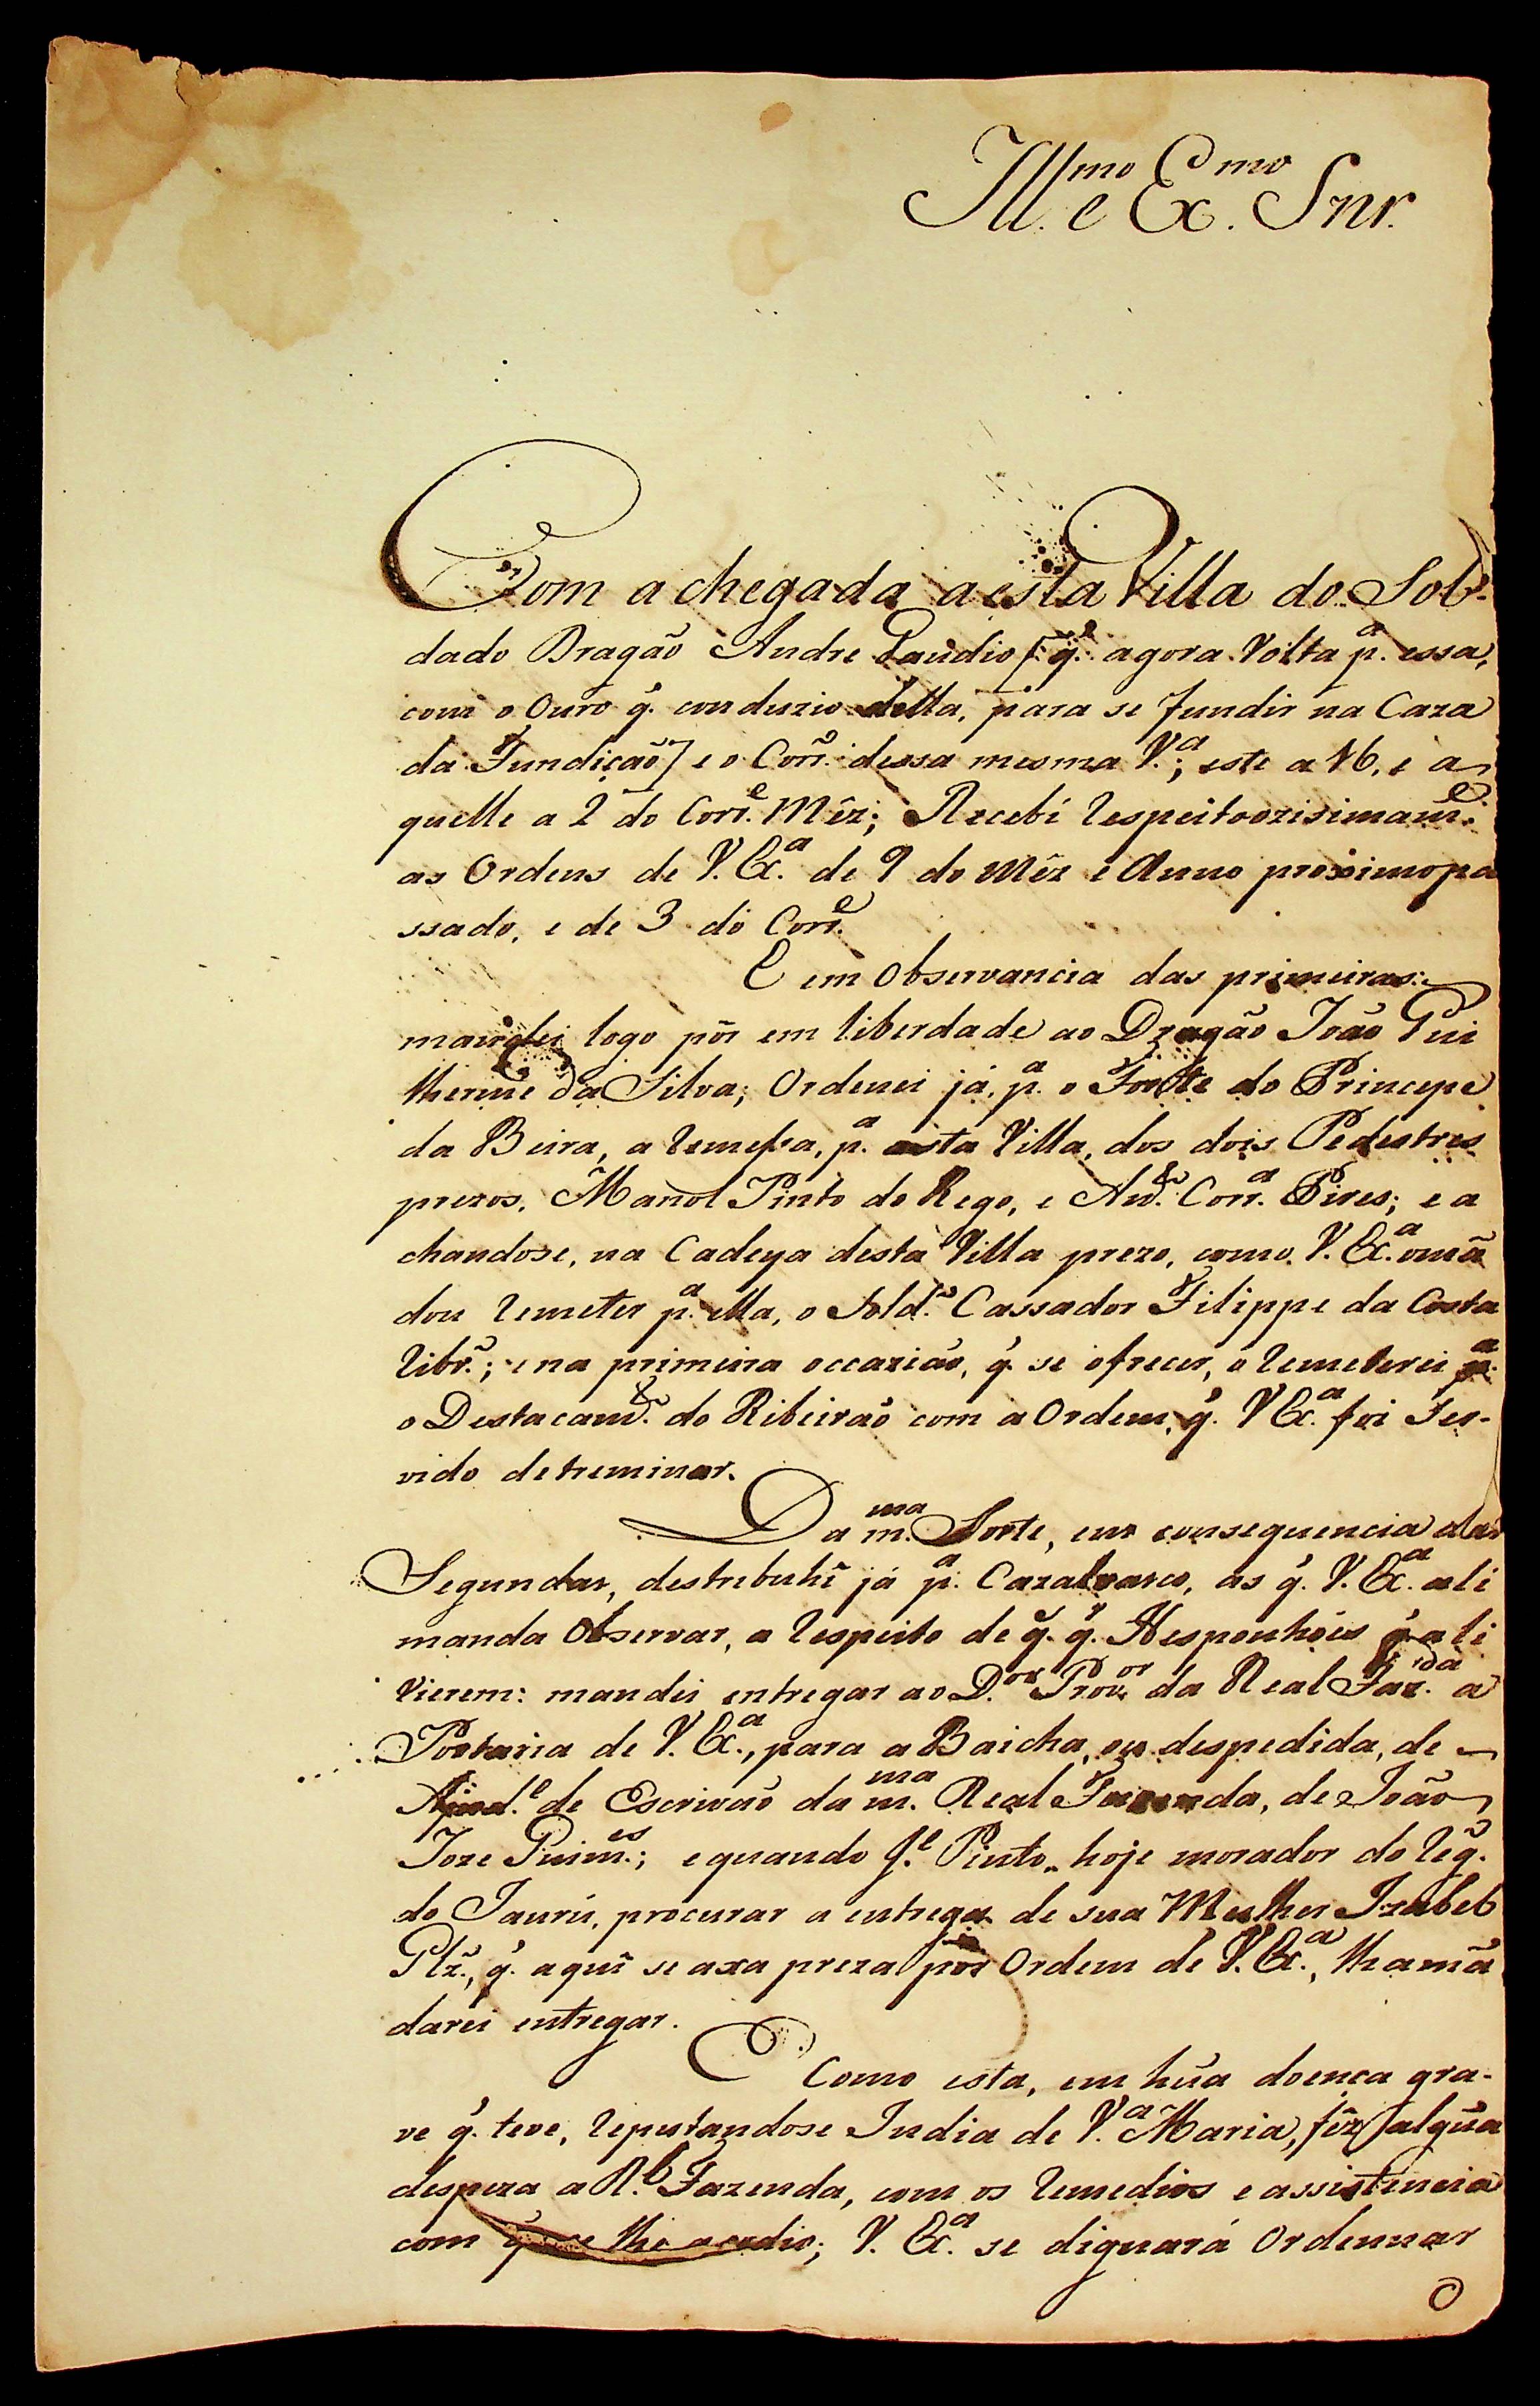 Ill.mo e Ex.mo Snr.
Com a chegada a esta Villa do Sol-
dado Dragão Andre Gaudio [q̃ agora Volta p.a essa,
com o Ouro q̃ conduzio della, para se fundir na Caza
da Fundição] e o Corr.o dessa mesma V.a; este a 16, e a
quelle a 2 do Corr.e Mêz; Recebi respeitozisimam.e
as Ordens de V. Ex.a de 9 do Mêz e Anno proximopa
ssado, e de 3 do Corr.e
E em Observancia das primeiras:
mandei logo pôr em liberdade ao Dragão João Gui
lherme da Silva; Ordenei já, p.a o Forte do Principe
da Beira, a remessa, p.a esta Villa, dos dois Pedestres
prezos, Manol Pinto do Rego, e An.to Corr.a Pires; e a
chandose, na Cadeya desta Villa prezo, como V. Ex.a omã
dou remeter p.a ella, o Sold.o Cassador Filippe da Costa
Ribr.o; e na primeira occazião, q̃ se ofrecer, o remeterei p.a
o Destacam.to do Ribeirão com a Ordem, q̃ V Ex.a foi Ser-
vido detreminar.
Da m.ma Sorte, em consequencia das
Segundas, destribuhî já p.a Cazalvasco, as q̃ V. Ex.a ali
manda Observar, a respeito de q.q̃ Hesponhóes q̃ ali
vierem: mandei entregar ao D.or Prov.or da Real Faz.da a
Portaria de V. Ex.a, para a Baicha, ou despedida, de
Ajud.e de Escrivão da m.ma Real Fazenda, de João
Joze Guim.es; e quando J.e Pinto hoje morador do reg.o
do Jaurú, procurar a entrega de sua Mulher Izabel
Glz̃, q̃ aquî se axa preza pôr Ordem de V. Ex.a, lha mã
darei entregar.
E Como esta, em hũa doença gra-
ve q̃ teve, reputandose India de V.a Maria, fêz algũa
despeza a R.l Fazenda, com os remedios e assistencia
com q̃ se lhe acudio; V. Ex.a se dignará Ordennar
O